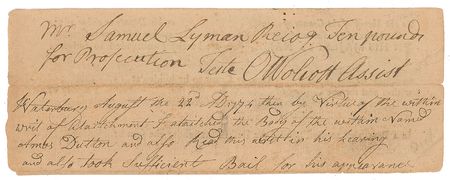 Mr. Samuel Lyman Recog Ten pounds
for Prosecution Teste O Wolcott Assist
Waterbury August the 22d AD 1774 then by Virtue of the within
writ of Attachment I attached the Body of the within Named
Amos Dutton and also Read this writ in his hearing
and also took Sufficient Bail for his appearance